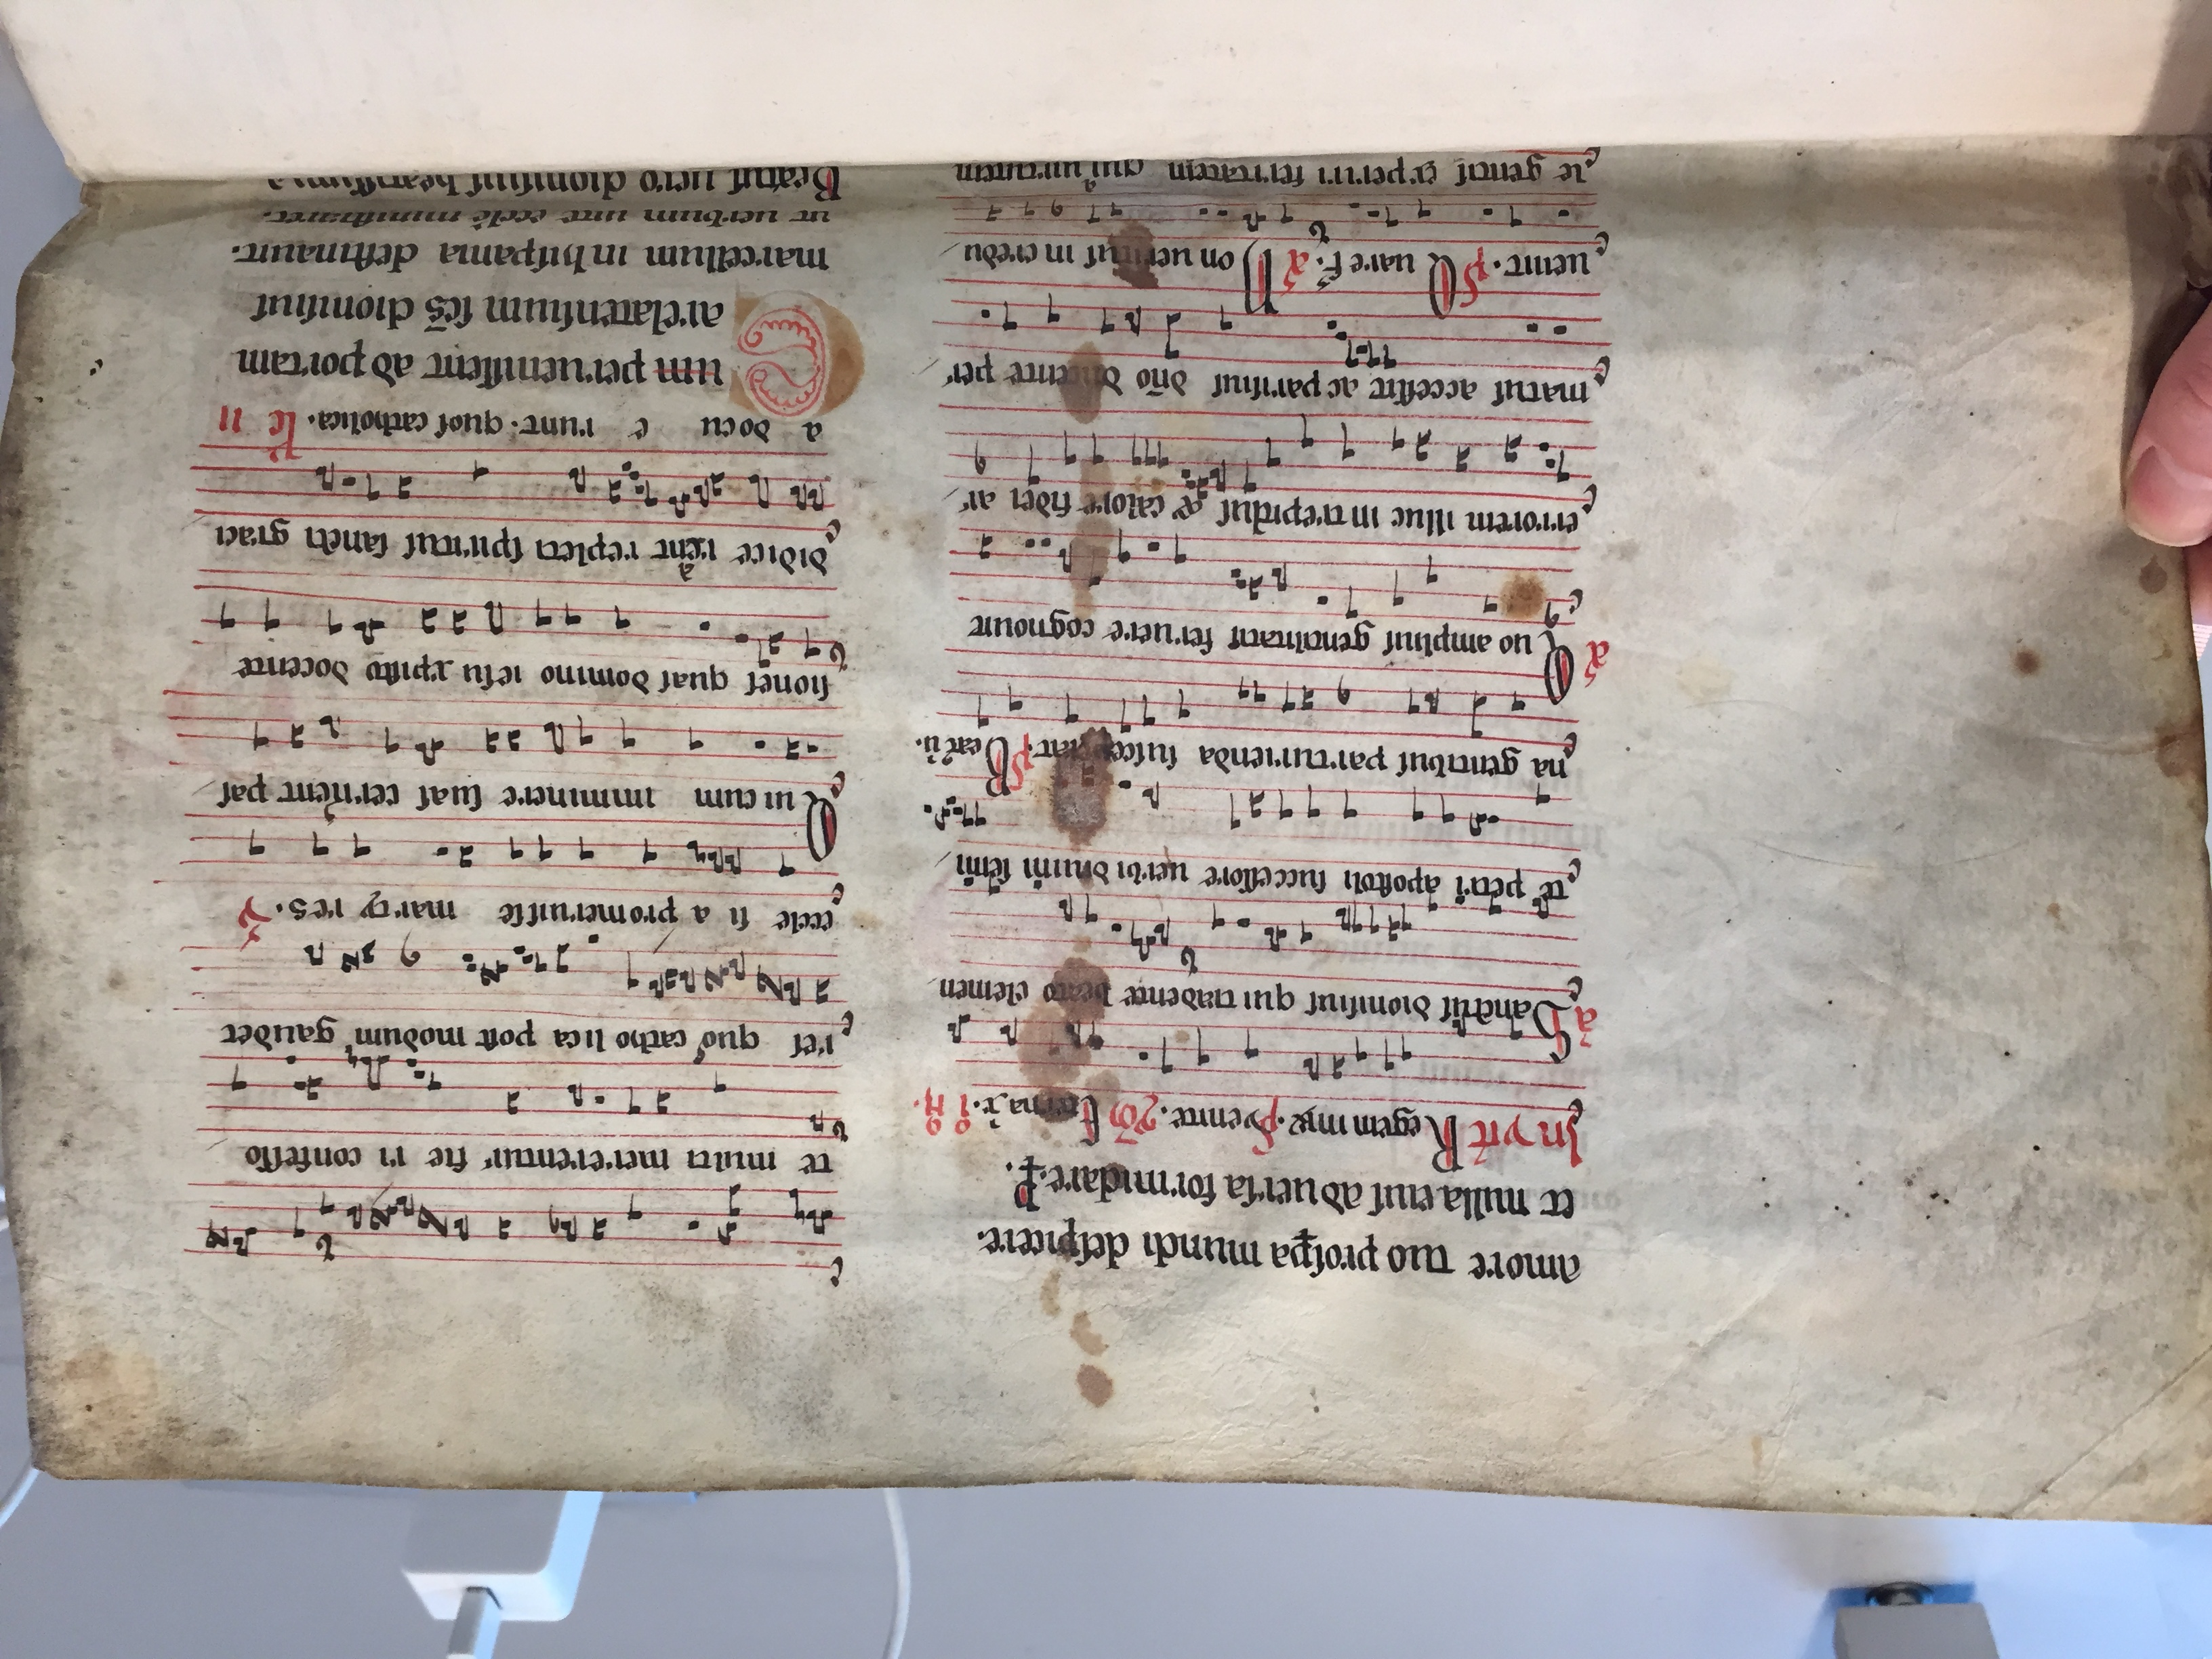 amore tuo prosꝑa mundi despicere.
et nulla eius aduersa formidare. P.
In vit Regem mr̄e. ps venite. ẏm̄ Eterna x̄. i n.
a Sanctus dionisius qui tradente beato clemen
te petri apostoli successore uerbi diuini semi
na gentibus parturienda susceperat. ps Beat' u.
a Quo amplius gentilitatis feruere cognouit
errorem illuc intrepidus & calore fidei ar
matus accessit ac parisius dño ducente per
uenit. ps Quare f. a Non ueritus in credu
le gentis experiri feritatem qui uirtutem
te multi mererentur fie ri confesso
res quos catho lica post modum gaudet
eccle si a promeruisse marty res. V
Qui cum imminere suas cernerent pas
siones quas domino iesu xpisto docente
didice rant repleti spiritus sancti graci
a docu e runt. quos catholica. lc̄ ii
Cum peruenissent ad portam
arelatensium scs̄ dionisius
marcellum in hispania destinauit.
ut uerbum uite eccle ministraret.
Beatus uero dionisius beatissimi a